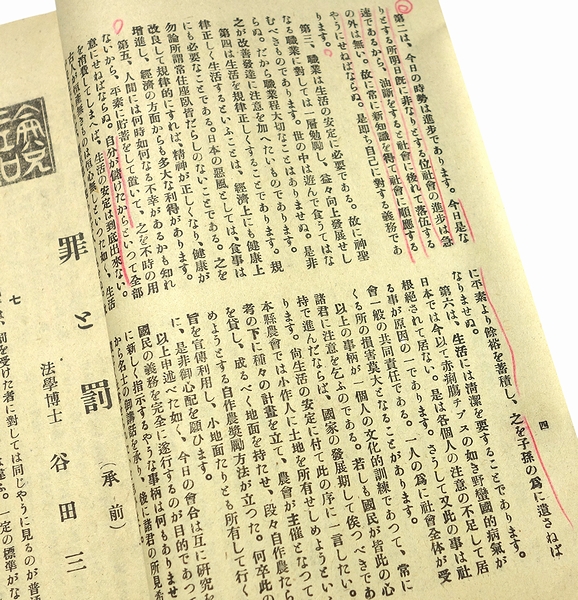 第二は、今日の時勢は進歩であります。今日是な
りとする所明日既に非なりとする位社會の進歩は急
速であるから、油斷をすると社會に後れて落伍する
の外は無い。故に常に新知識を得て社會に順應する
やうにせねばならぬ。是即ち自己に對する義務であ
ります。
第三、職業は生活の安定に必要である。故に神聖
なる職業に對しては一層勉勵し、益々向上發展せし
むべきものであります。世の中は遊んで食うてはな
らぬ。だから職業程大切なことはありませぬ。是非
之が改善發達に注意を加へたいものであります。
第四は生活を規律正しくすることであります。規
律正しく生活するといふことは、經濟上にも健康上
にも必要なことである。日本の惡風としては食事は
勿論所謂常住座臥皆だらしのないことである。之を
改良して規律的にすれば、精神が正しくなり、健康が
増進し、經濟の方面からも多大な利得があります。
第五、人間には何時如何なる不幸があるかも知れ
ないから、平素に貯蓄をして置いて、之を不時の用
意にせねばならぬ。自分が儲けたからといつて全部
を消費してしまへば、生活の安定は到底出來ない。
古人も恒産無きものは恒心無しといつた如く、生活
に平素より餘裕を蓄積し、之を子孫の爲に遺さねば
なりませぬ。
第六は、生活には清潔を要することであります。
日本では今以て赤痢膓チブスの如き野蠻國的病氣が
根絕されて居ない。是は各個人の注意の不足して居
る事が原因の一であります。さうして又此の事は社
會一般の共同責任である。一人の爲に社會全体が受
くる所の損害莫大となることがあります。
以上の事柄が一個人の文化的訓練であつて、常に
諸君に注意を乞ふのである。若しも國民が皆此の心
持で進んだならば、國家の發展期して俟つべきであ
ります。尚生活の安定に付て此の序に一言したい。
本縣農會では小作人に土地を所有せしめようといふ
考の下に種々の計畫を立て、農會が主催となつて
を貸し、成るべく地面を持たせ、段々自作農たら
めようとする自作農奬勵方法が立つた。何卒此の
旨を宣傳利用し、小地面たりとも所有して行く
に、是非御心配を願ひます。
以上申述べた如く、今日の會合は互に研究を
國民の義務を完全に遂行するのが目的であつて
に新しく指示するやうな事柄は何もありませ
から名士の御講話を承り、後に諸君の所見
四
罪と罰(承前)
法學博士 谷田三
七
罰を受けた者に對しては同じやうに見るのが普
一定の標準がな